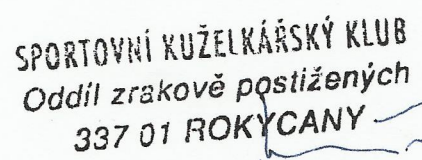 SPORTOVNÍ KUŽELKÁŘSKÝ KLUB
Oddíl zrakově postižených
337 01 ROKYCANY